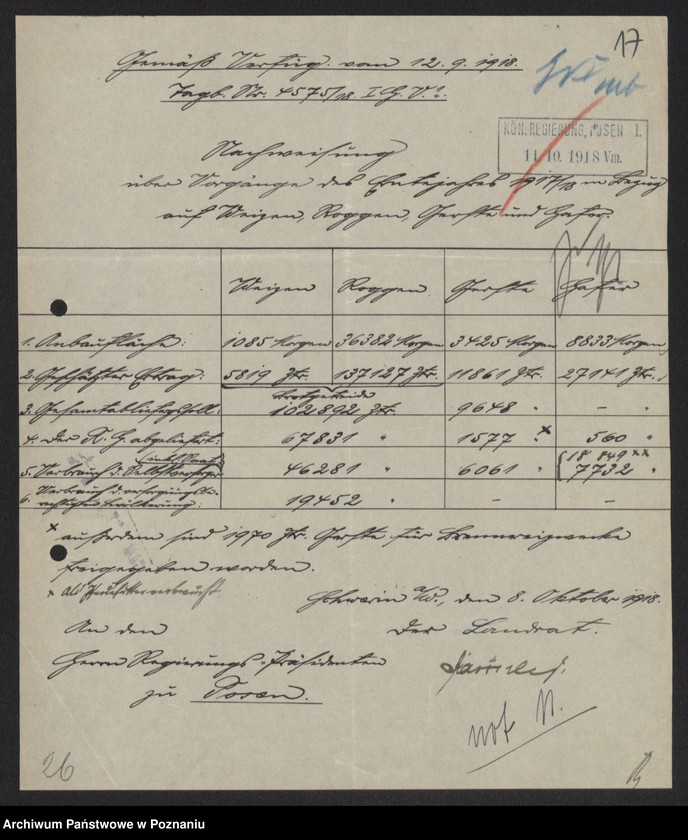 17
Gemäß Verfüg. vom 12.9.1918.
Tagb. Nr. 4575/18 I.G.V.
KÖN. REGIERUNG, POSEN I.
11.10.1918 Vm.
Nachweisung
über Vorgänge des Erntejahres 1917/18 in Bezug
auf Weizen, Roggen, Gerste und Hafer.
Weizen Roggen Gerste Hafer
1. Anbaufläche: 1085 Morgen 36382 Morgen 3425 Morgen 8833 Morgen
2. Geschätzter Ertrag: 5819 Ztr. 137127 Ztr. 11861 Ztr. 27141 Ztr.
Brotgetreide
3. Gesamtablieferungssoll: 102892 Ztr. 9648 " - "
4. Der R.G. abgeliefert: 67831 " 1577 " x 560 "
(inkl. Saat) 18 849 xx
5. Verbrauch d. Selbstversorger 46281 " 6061 " 7732 "
6. Verbrauch d. versorgungsbe-
rechtigten Bevölkerung: 19452 " - -
x außerdem sind 1970 Ztr. Gerste für Brennereizwecke
freigegeben worden.
x als verbraucht.
Schwerin a/W., den 8. Oktober 1918.
An den Der Landrat.
Herrn Regierungs-Präsidenten
zu Posen.
not N.
26
Archiwum Państwowe w Poznaniu